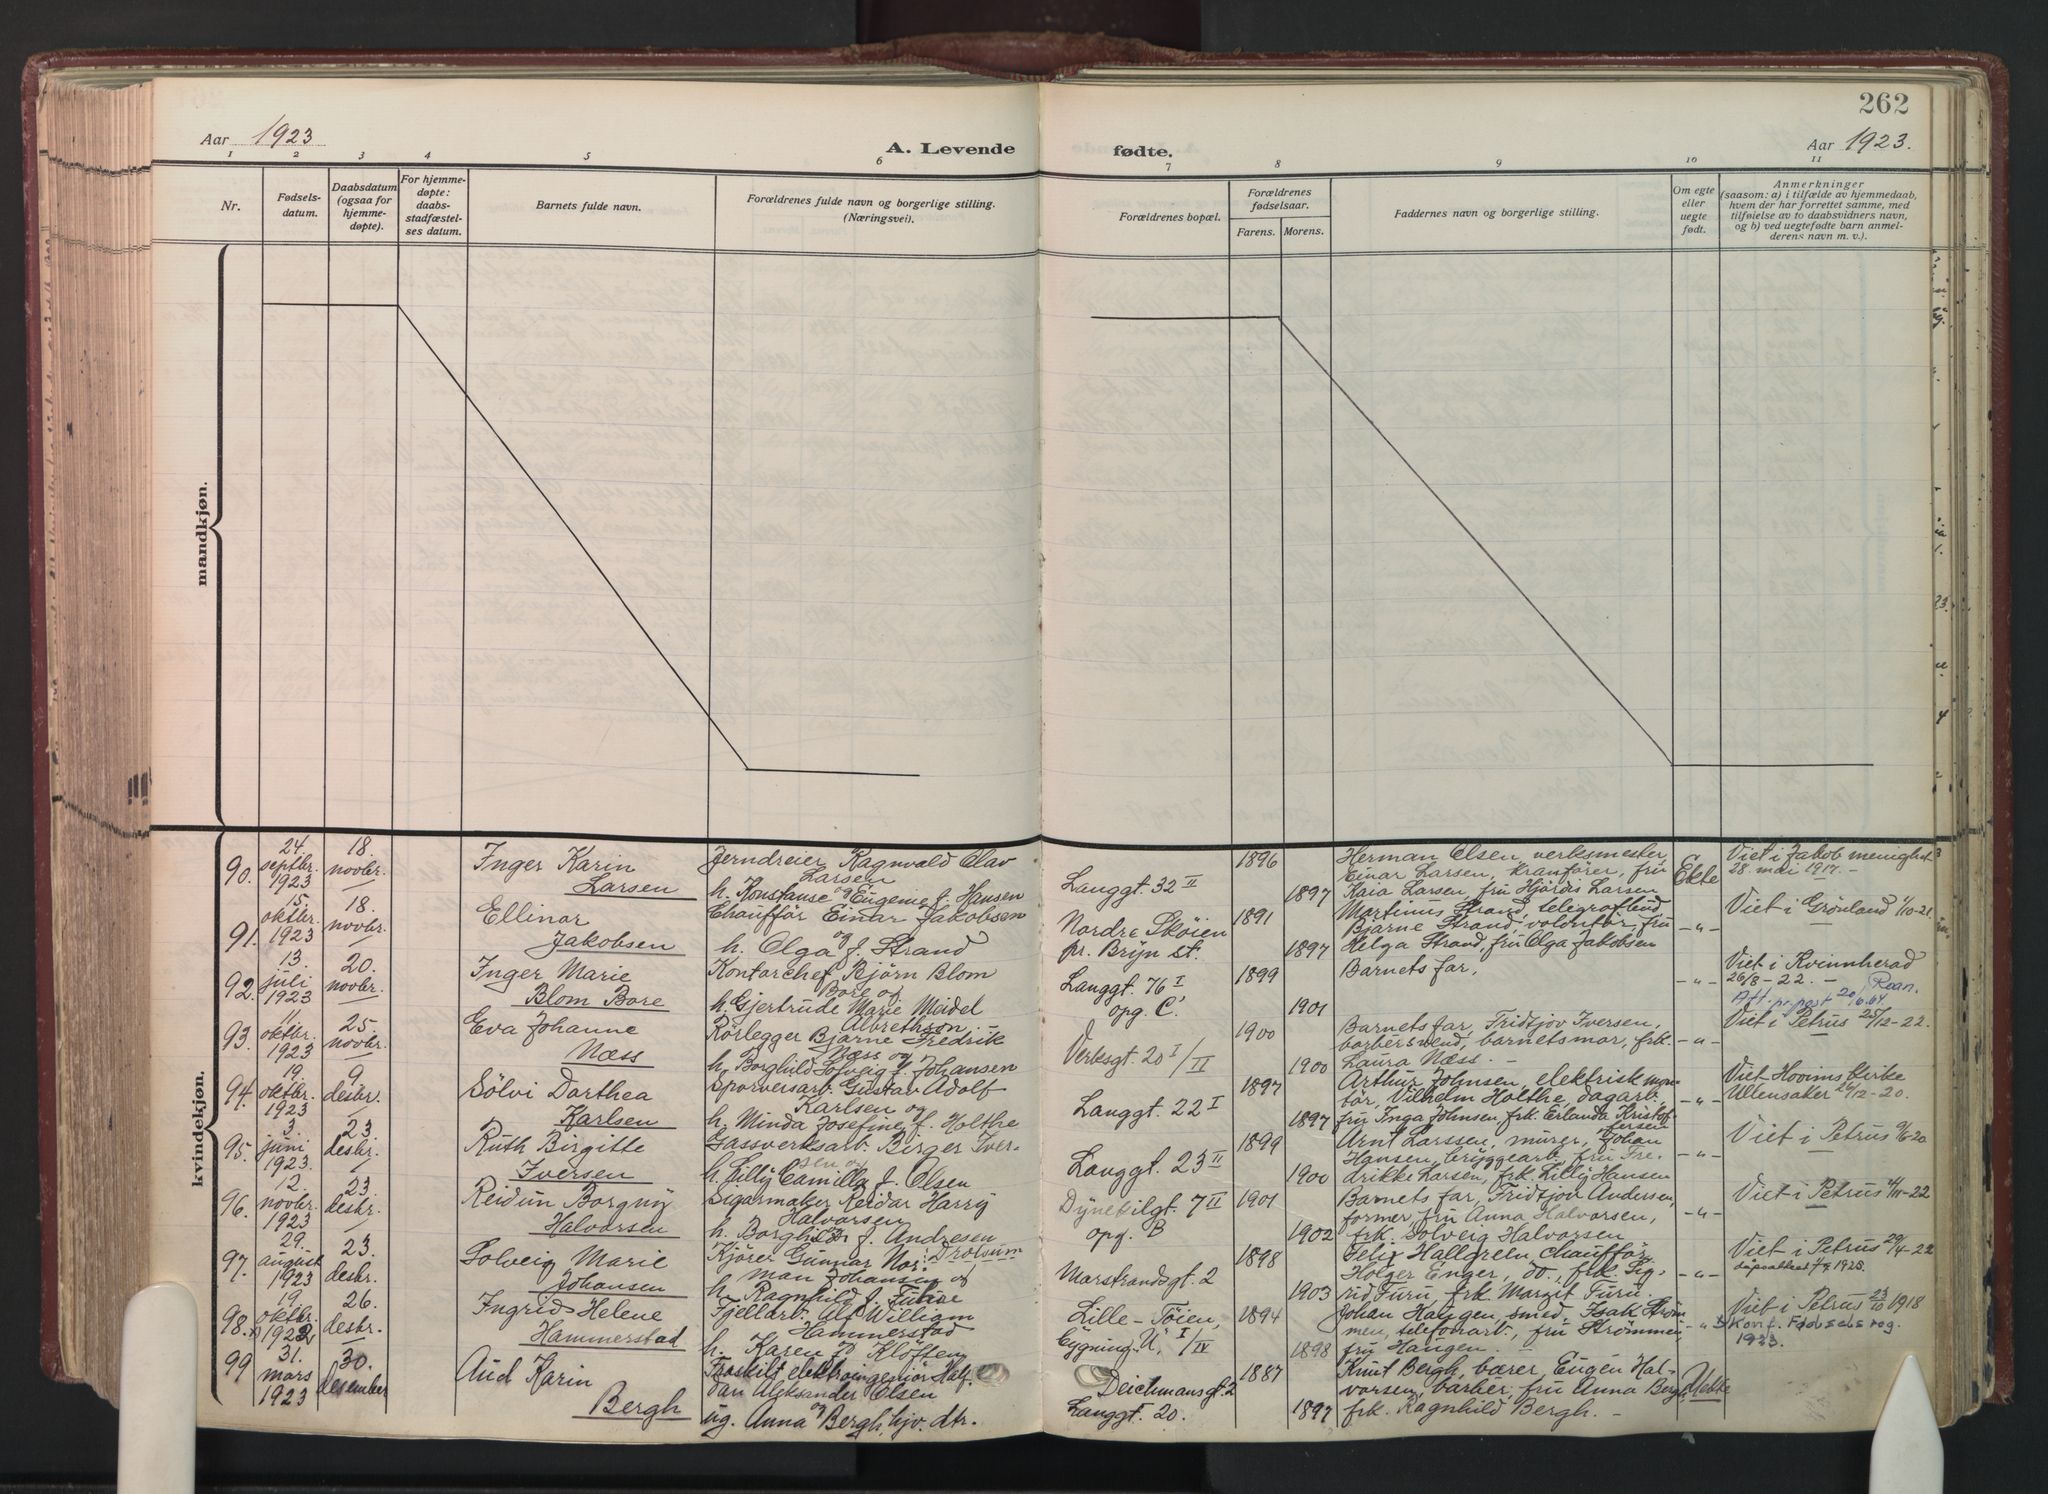 262
Aar 1923
A. Levende
fødte.
Aar 1923.
1 2 3 4 5 6 7 8 9 10 11
Nr.
Fødsels-
datum.
Daabsdatum
(ogsaa for
hjemme-
døpte).
For hjemme-
døpte:
daabs-
stadfæstel-
ses datum.
Barnets fulde navn.
Forældrenes fulde navn og borgerlige stilling.
(Næringsvei).
Forældrenes bopæl.
Forældrenes
fødselsaar.
Farens. Morens.
Faddernes navn og borgerlige stilling.
Om egte
eller
uegte
født.
Anmerkninger
(saasom: a) i tilfælde av hjemmedaab,
hvem der har forrettet samme, med
tilføielse av to daabsvidners navn,
og b) ved uegtefødte barn anmel-
derens navn m. v.).
mandkjøn.
kvindekjøn.
90.
24.
septbr.
1923
18.
novbr.
Inger Karin
Larsen
Jerndreier Ragnvald Olav
Larsen
og
h. Konstanse Eugenie f. Hansen
Langgt. 32 II
1896
1897
Herman Olsen, verksmester,
Einar Larsen, kranförer, fru
Kaia Larsen, fru Hjördis Larsen
Ekte
Viet i Jakob menighet
28. mai 1917. -
91.
15.
oktbr.
1923
18.
novbr.
Ellinor
Jakobsen
Chaufför Einar Jakobsen
og
h. Olga f. Strand
Nordre Sköien
pr. Bryn st.
1891
1897
Martinus Strand, telegrafbud,
Bjarne Strand, volontör, fru
Helga Strand, fru Olga Jakobsen
- „ -
Viet i Grönland 1/10-21.
92.
13.
juli
1923
20.
novbr.
Inger Marie
Blom Bore
Kontorchef Björn Blom
Bore og
h. Gjertrude Marie Meidel
Langgt. 76 I
opg. C.
1899
1901
Barnets far,
- „ -
Viet i Kvinnherad
26/8-22. -
Att. pr. post 20/6.64
93.
11.
oktbr.
1923
25.
novbr.
Eva Johanne
Næss
Albrethson
Rörlegger Bjarne Fredrik
Næss og
h. Borghild Solveig f. Johansen
Verksgt. 20 I/II
1900
1900
Barnets far, Fridtjov Iversen,
barbersvend, barnets mor, frk.
Laura Næss. -
- „ -
Viet i Petrus 25/12-22.
94.
19.
oktbr.
1923
9.
desbr.
Sölvi Dorthea
Karlsen
Sporveisarb. Gustav Adolf
Karlsen og
h. Minda Josefine f. Holthe
Langgt. 22 I
1897
1897
Arthur Johnsen, elektrisk mon-
tör, Vilhelm Holthe, dagarb.,
fru Inga Johnsen, frk. Erlanda Kristof-
fersen
- „ -
Viet Hovins kirke
Ullensaker 26/12-20.
95.
3.
juni
1923.
23.
desbr.
Ruth Birgitte
Iversen
Gassverksarb. Birger Iver-
sen og
h. Lilly Camilla f. Olsen
Langgt. 23 II
1899
1900
Arnt Larssen, murer, Johan
Hansen, bryggearb., fru Fre-
drikke Larsen, frk. Lilly Hansen
- „ -
Viet i Petrus 9/6-20
96.
12.
novbr.
1923
23.
desbr.
Reidun Borgny
Halvorsen
Sigarmaker Reidar Harry
Halvorsen
og
h. Borghild f. Andresen
Dynekilgt. 7 II
opg. B
1901
1902
Barnets far, Fridtjov Andersen,
former, fru Anna Halvorsen,
frk. Solveig Halvorsen
- „ -
Viet i Petrus 4/11-22
97.
29.
august
1923
23.
desbr.
Solveig Marie
Johansen
Kjörer Gunnar Nor-
man Johansen og
h. Ragnhild f. Furue
Marstrandsgt. 2
1898
1903
Felix Hallgreen, chaufför,
Holger Enger, do., frk. Sig-
rid Furu, frk. Margit Furu.
- „ -
Viet i Petrus 29/4-22
98.
19.
oktbr.
1922
26.
desbr.
Ingrid Helene
Hammerstad
Fjellarb. Alf William
Hammerstad
og
h. Karen f. Kloften
Lille-Töien,
bygning U, I/IV
1894
1898
Johan Haugen, smed, Isak Ström-
men, telefonarb., fru Strömmen,
fru Haugen. -
- „ -
Viet i Petrus 23/10 1918
Konf. Fødselsreg.
1923.
99
31.
mars
1923
30.
desember
Aud Karin
Bergh
Fraskilt elektroingeniör Half-
dan Aleksander Olsen
og
ug. Anna Bergh, hjv. dtr.
Deichmansgt. 2
Langgt. 20.
1887
1897
Knut Bergh, bærer, Eugen Hal-
vorsen, barber, fru Anna Bergh,
frk. Ragnhild Bergh. -
Uekte